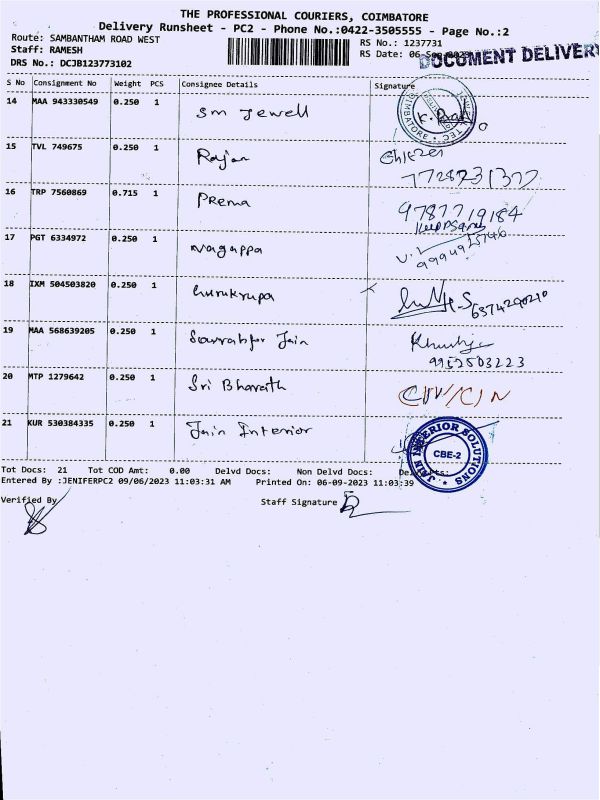 THE PROFESSIONAL COURIERS, COIMBATORE
Delivery Runsheet - PC2 - Phone No.:0422-3505555 - Page No.:2
Route: SAMBANTHAM ROAD WEST
RS No.: 1237731
Staff: RAMESH
RS Date: 06-Sep-2023
DOCUMENT DELIVERY
DRS No.: DCJB123773102
S No Consignment No Weight PCS Consignee Details Signature
14 MAA 943330549 0.250 1 Sm Jewell
15 TVL 749675 0.250 1 Rajan
16 TRP 7560869 0.715 1 Prema 9787719184
17 PGT 6334972 0.250 1 Nagappa
18 IXM 504503820 0.250 1 Gurukrupa
19 MAA 568639205 0.250 1 Jain
9952503223
20 MTP 1279642 0.250 1 Sri Bharath
21 KUR 530384335 0.250 1 Jain Interior
JAIN INTERIOR SOLUTIONS
CBE-2
Tot Docs: 21 Tot COD Amt: 0.00 Delvd Docs: Non Delvd Docs:
Entered By :JENIFERPC2 09/06/2023 11:03:31 AM Printed On: 06-09-2023 11:03:39
Verified By
Staff Signature